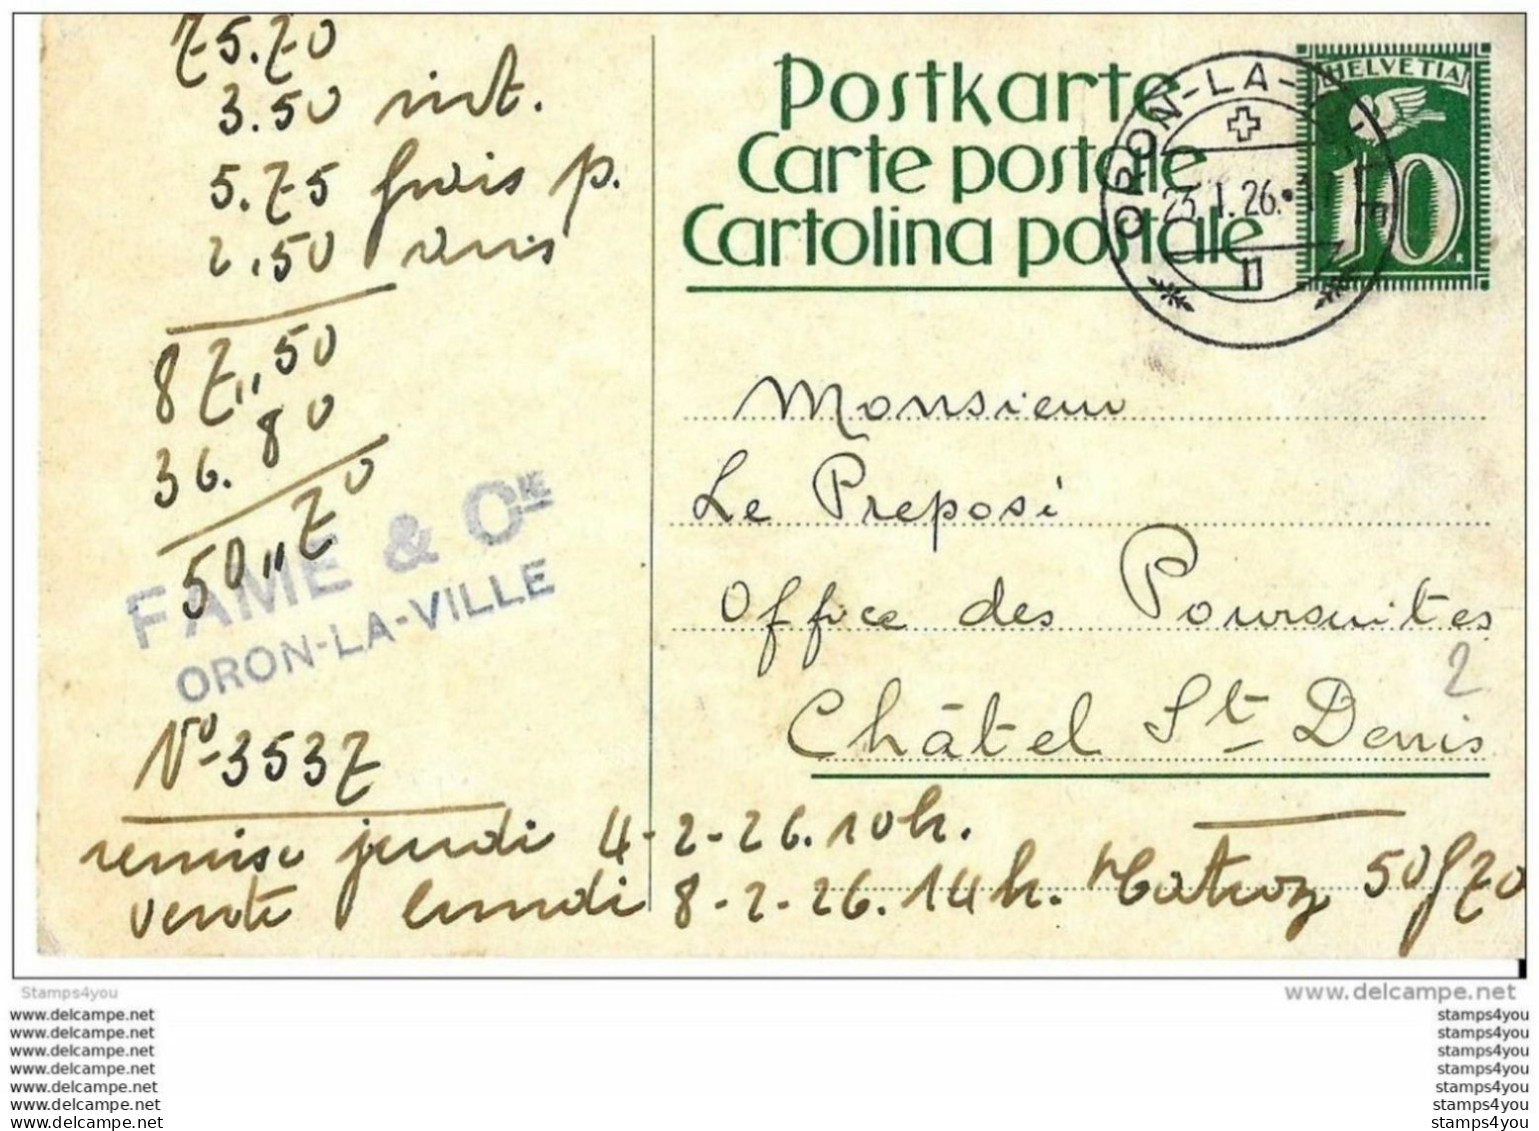 75.70
3.50 int.
5.75 frais p.
2.50
87,,50
36.80
50,,70
FAME & CIE
ORON-LA-VILLE
No 3537
Postkarte
Carte postale
Cartolina postale
ORON-LA-VILLE
23.I.26.
HELVETIA
10
Monsieur
Le Preposé
Office des Poursuites
2
Châtel St Denis
remise jeudi 4-2-26.10h.
vente lundi 8-2-26.14h. 50f70
Stamps4you
www.delcampe.net
www.delcampe.net
www.delcampe.net
www.delcampe.net
www.delcampe.net
www.delcampe.net
www.delcampe.net
www.delcampe.net
stamps4you
stamps4you
stamps4you
stamps4you
stamps4you
stamps4you
stamps4you